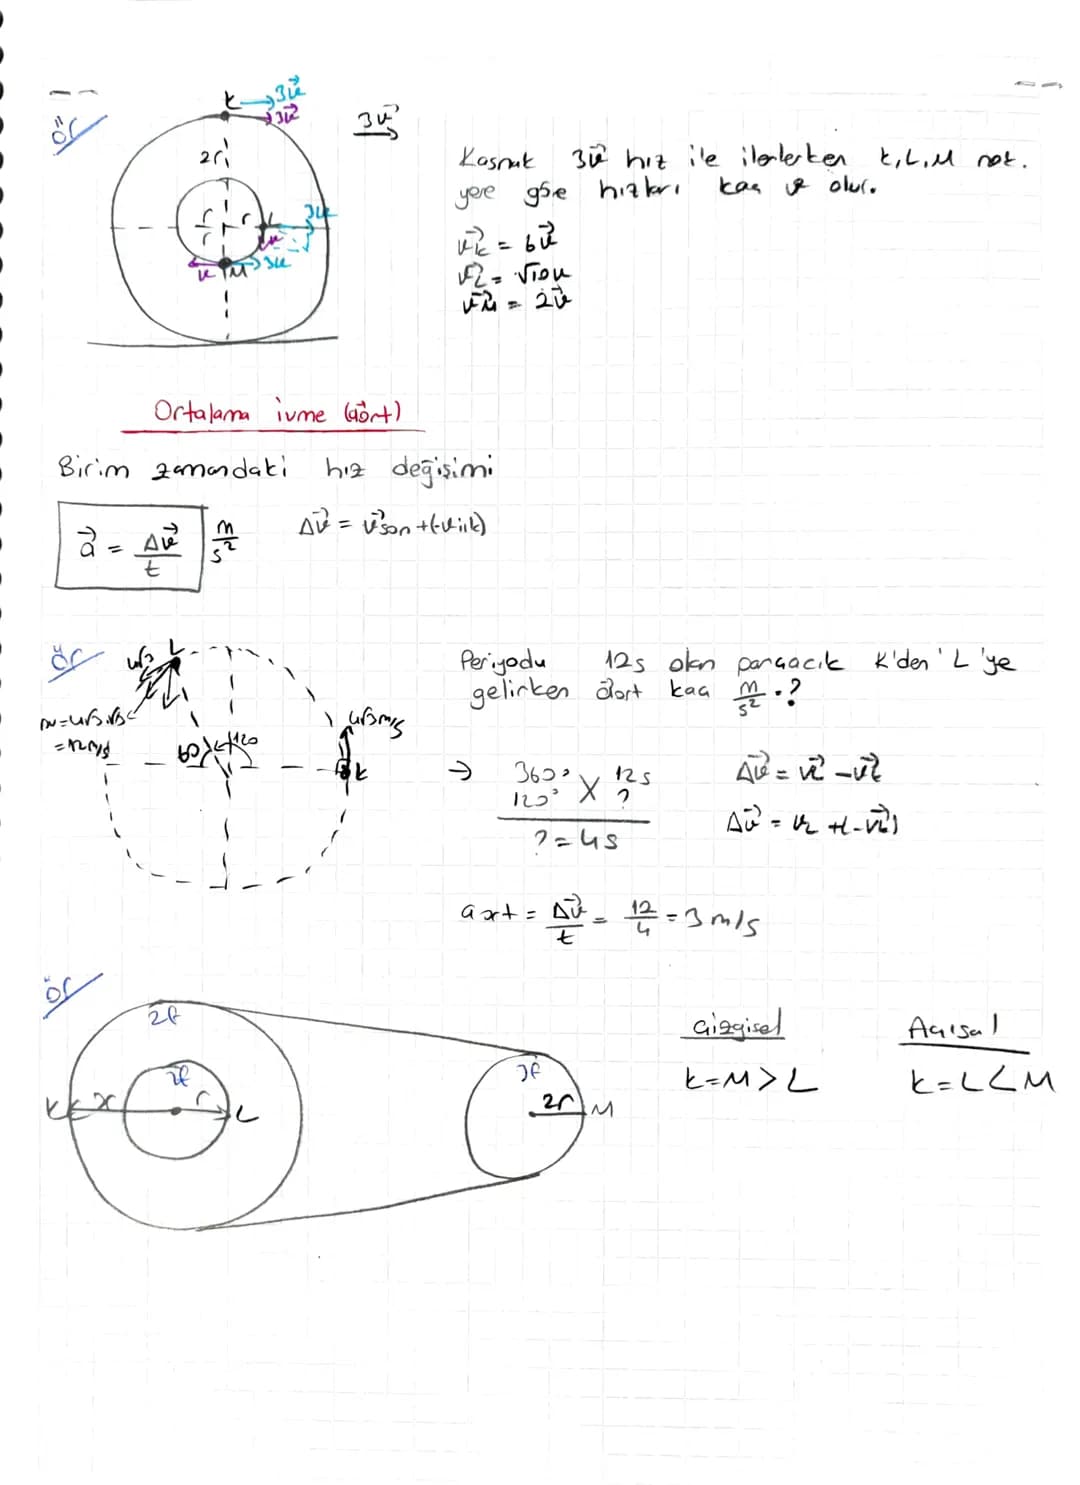 ör
K 3v
3v
3v
2r
r r L 3v
r v
v M 3v
Kasnak 3v hız ile ilerlerken K, L, M nok.
yere göre hızları kaç v olur.
vK = 6v
vL = √10v
vM = 2v
Ortalama ivme (aort)
Birim zamandaki hız değişimi
a = Δv / t m/s²
Δv = vson + (-vilk)
ör
4√3 L
Δv = 4√3.√3
= 12 m/s
4√3 m/s
60 120
K
Periyodu 12s olan parçacık K'den 'L'ye
gelirken aort kaç m/s².?
→ 360° 12s
120° X ?
? = 4s
Δv = vL - vK
Δv = vL + (-vK)
aort = Δv / t = 12 / 4 = 3 m/s
ör
2f
2f
3f
K x r L
2r M
Çizgisel
K = M > L
Açısal
K = L < M